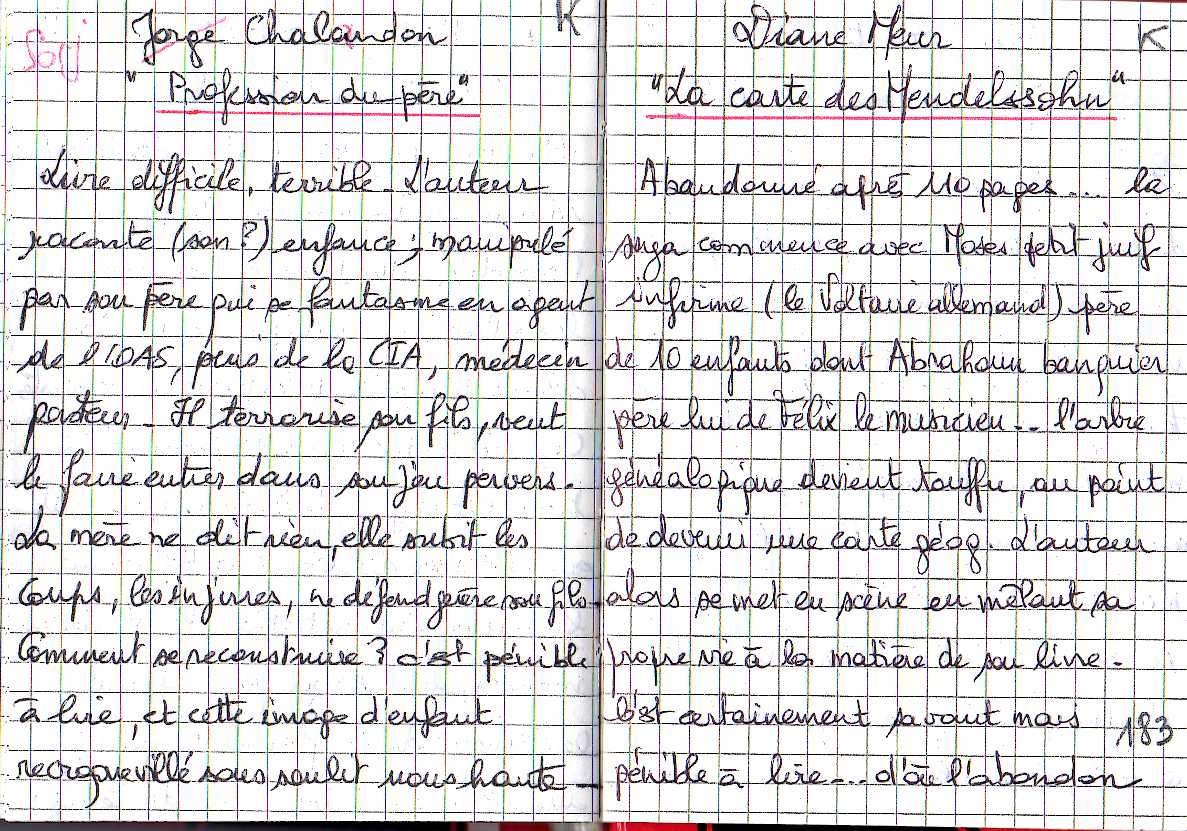 Sorj
Jorge Chalandon K
"Profession du père"
Livre difficile, terrible - L'auteur
raconte (son ?) enfance ; manipulé
par son père qui se fantasme en agent
de l'OAS, puis de la CIA, médecin
pasteur - Il terrorise son fils, veut
le faire entrer dans son jeu pervers.
La mère ne dit rien, elle subit les
coups, les injures, ne défend guère son fils.
Comment se reconstruire ? c'est pénible
à lire, et cette image d'enfant
recroquevillé sous son lit nous hante -
Diane Meur K
"La carte des Mendelssohn"
Abandonné après 110 pages... la
saga commence avec Moses petit juif
infirme (le Voltaire allemand) père
de 10 enfants dont Abraham banquier
père lui de Félix le musicien... l'arbre
généalogique devient touffu, au point
de devenir une carte géog. L'auteur
alors se met en scène en mêlant sa
propre vie à la matière de son livre -
C'est certainement savant mais
pénible à lire... d'où l'abandon
183